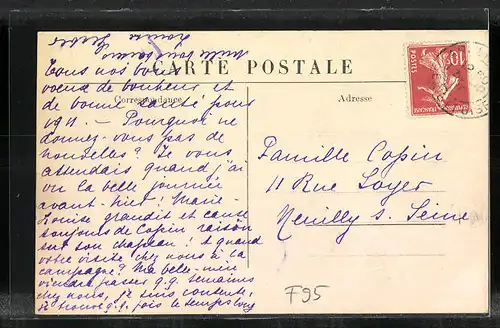 CARTE POSTALE
Correspondance
Adresse
10
POSTES
Tous nos bons
voeux de bonheur et
de bonne santé pour
1911 - Pourquoi ne
donnez-vous pas de
nouvelles? Je vous
attendais quand j'ai
vu la belle journée
avant-hier! Marie-
Louise grandit et cause
toujours de Copin raison
sur son chapeau! A quand
votre visite chez nous à la
campagne? Ma belle-mère
viendra passer q.q. semaines
chez nous, je suis contente,
je trouve q.q. fois le temps long
Mille
Louise
Famille Copin
11 Rue Soyer
Neuilly s. Seine
F95